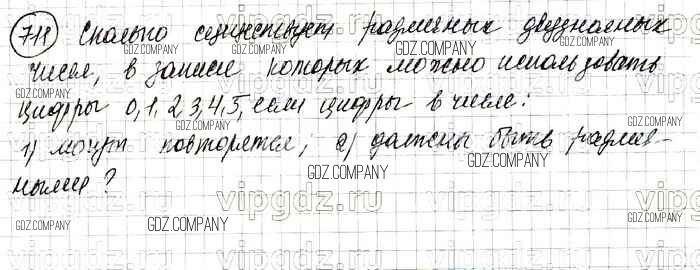 718 Сколько существует различных двузначных
GDZ.COMPANY GDZ.COMPANY GDZ.COMPANY
чисел, в записи которых можно использовать
vipgdz.ru vipgdz.ru vipgdz.ru
цифры 0, 1, 2, 3, 4, 5, если цифры в числе:
GDZ.COMPANY GDZ.COMPANY GDZ.COMPANY
1) могут повторятся; 2) должны быть различ-
GDZ.COMPANY GDZ.COMPANY GDZ.COMPANY
ными?
vipgdz.ru vipgdz.ru vipgdz.ru
GDZ.COMPANY GDZ.COMPANY GDZ.COMPANY
vipgdz.ru vipgdz.ru vipgdz.ru